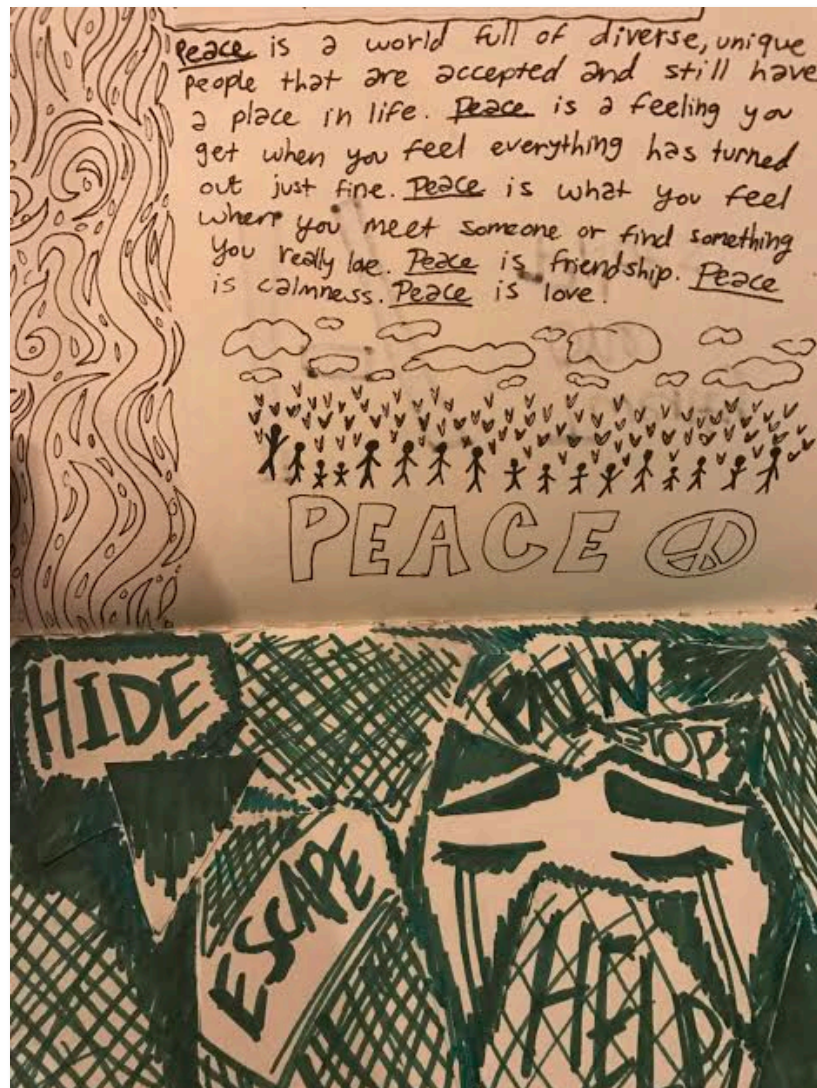 Peace is a world full of diverse, unique
people that are accepted and still have
a place in life. Peace is a feeling you
get when you feel everything has turned
out just fine. Peace is what you feel
when you meet someone or find something
you really love. Peace is friendship. Peace
is calmness. Peace is love!
PEACE
HIDE
PAIN
STOP
ESCAPE
HELP